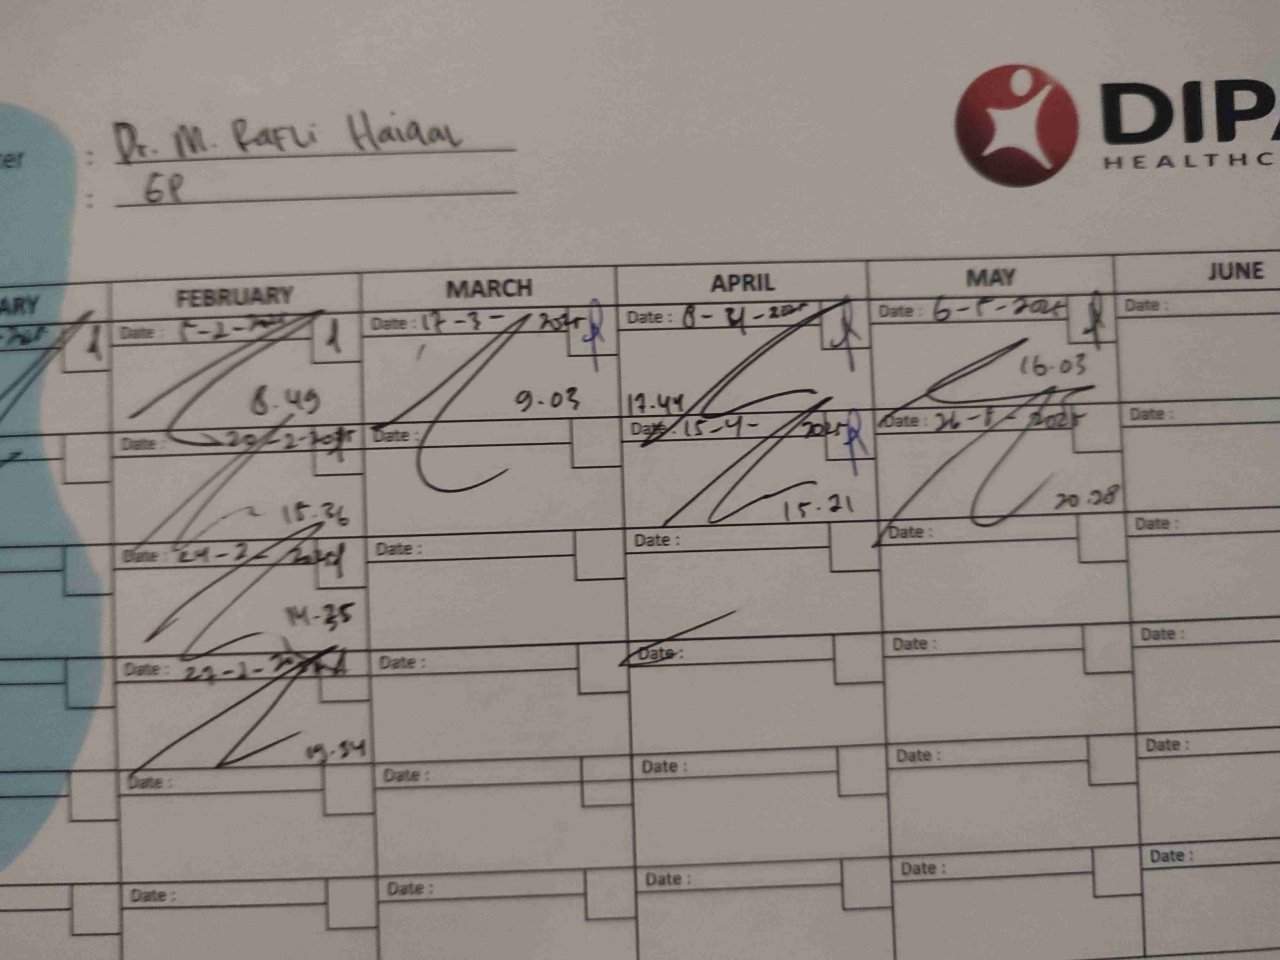 : Dr. M. Rafli Haiqal
: GP
DIPA
HEALTHC
ARY FEBRUARY MARCH APRIL MAY JUNE
Date : 5-2-2025 Date : 17-3-2025 Date : 8-4-2025 Date : 6-5-2025 Date :
8.49 9.03 17.44 16.03
Date : 20-2-2025 Date : Date : 15-4-2025 Date : 26-5-2025 Date :
15.36 15.21 20.28
Date : 24-2-2025 Date : Date : Date : Date :
14.35
Date : 27-2-2025 Date : Date : Date : Date :
09.54
Date : Date : Date : Date : Date :
Date : Date : Date : Date : Date :